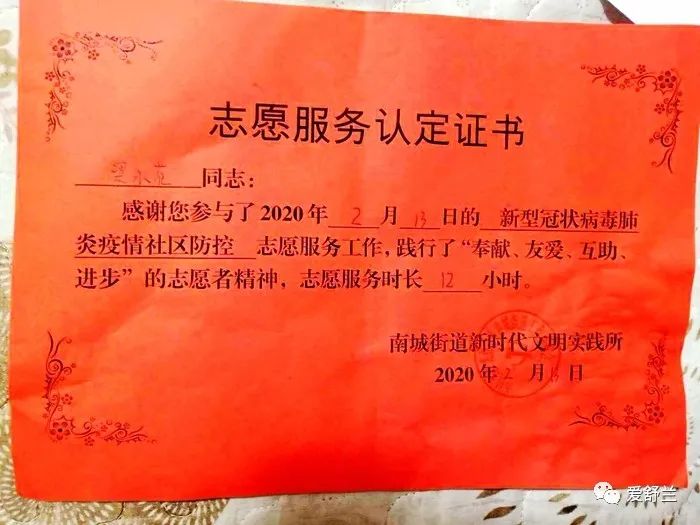 志愿服务认定证书
同志：
感谢您参与了2020年2月13日的 新型冠状病毒肺
炎疫情社区防控 志愿服务工作，践行了“奉献、友爱、互助、
进步”的志愿者精神，志愿服务时长12小时。
南城街道新时代文明实践所
2020年2月13日
爱舒兰